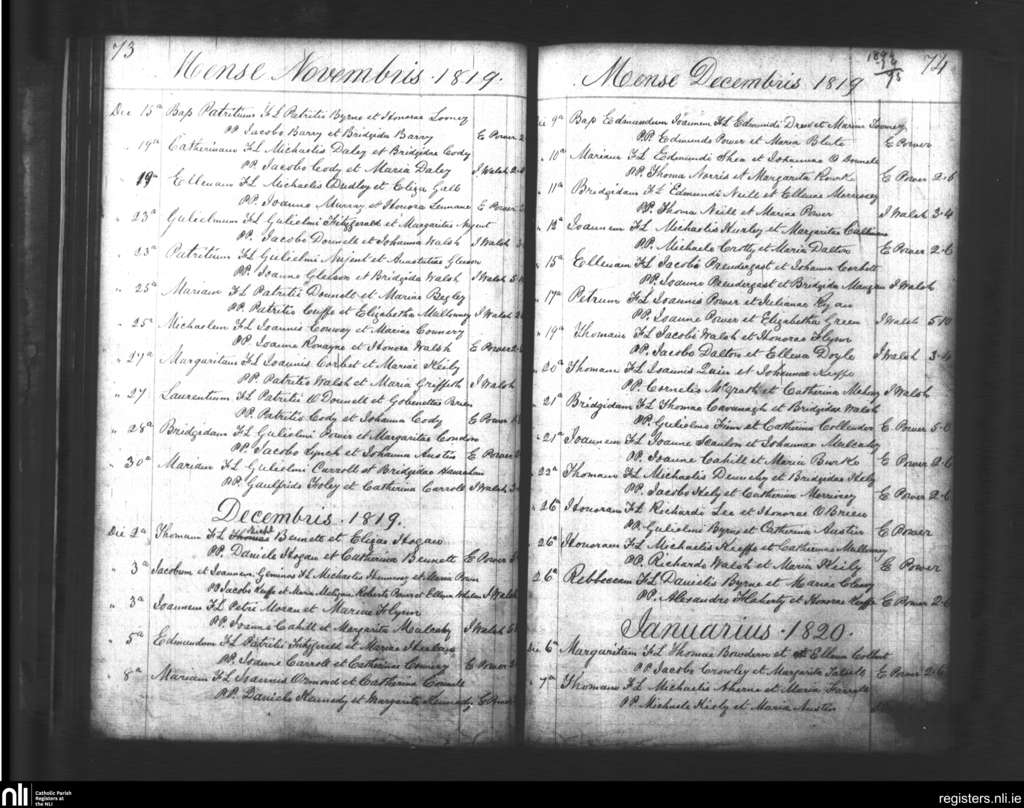 73
Mense Novembris. 1819.
Die 15a Bap Patritium FL Patritii Byrne et Honorae Looney
PP Jacobo Barry et Bridgida Barry E Power
" 19a Catherinam FL Michaelis Daley et Bridgidae Cody
PP. Jacobo Cody et Maria Daley J Walsh
" 19a Ellenam FL Michaelis Dudley et Eliza
PP. Joanne Murray et Honora E Power
" 23a Gulielmum FL Gulielmi Fitzgerald et Margaritae Nugent
PP. Jacobo Donnell et Johanna Walsh J Walsh
" 25a Patritium FL Gulielmi Nugent et Anastatiae Gleeson
PP. Joanne Gleeson et Bridgida Walsh J Walsh
" 25a Mariam FL Patritii Donnell et Mariae Begley
PP. Patritio Cuffe et Elizabetha Mullowney J Walsh
" 25a Michaelem FL Joannis Conway et Mariae Connery
PP. Joanne Ronayne et Honora Walsh E Power
" 27a Margaritam FL Joannis Corbet et Mariae Kiely
PP. Patritio Walsh et Maria Griffith J Walsh
" 27 Laurentium FL Patritii O'Donnell et
PP. Patritio Cody et Johanna Cody E Power
" 28a Bridgidam FL Gulielmi Power et Margaritae Condon
PP. Jacobo Lynch et Johanna Austin E Power
" 30a Mariam FL Gulielmi Carroll et Bridgidae
PP. Gaulfrido Foley et Catherina Carroll J Walsh
Decembris. 1819.
Die 2a Thomam FL Bennett et Elizae Hogan
PP. Daniele Hogan et Catherina Bennett E Power
" 3a Jacobum et Joannem Geminos FL Michaelis Hennessy et Maria
PP Jacobo Keeffe et Maria Roberto Power et Ellena Whelan J Walsh
" 3a Joannem FL Petri Moran et Mariae Flynn
PP. Joanne Cahill et Margarita Mulcahy J Walsh
" 5a Edmundum FL Patritii Fitzgerald et Mariae
PP. Joanne Carroll et Catherina Connery E Power
" 8a Mariam FL Joannis Ormond et Catherina
PP. Daniele Kennedy et Margarita Kennedy E Power
74
Mense Decembris 1819
Die 9a Bap Edmundum Joannem FL Edmundi Drew et Mariae Looney
PP. Edmundo Power et Maria E Power
" 10a Mariam FL Edmundi Shea et Johannae O Donnell
PP. Thoma Norris et Margarita E Power 2-6
" 11a Bridgidam FL Edmundi Neill et Ellenae
PP. Thoma Neill et Maria Power J Walsh 3-4
" 12a Joannem FL Michaelis Hurley et Margaritae
PP. Michaele Crotty et Maria Dalton E Power 2-6
" 15a Ellenam FL Jacobi Prendergast et Johanna Corbett
PP. Joanne Prendergast et Bridgida J Walsh
" 17a Petrum FL Joannis Power et Julianae Ryan
PP. Joanne Power et Elizabetha Green J Walsh 5-10
" 19a Thomam FL Jacobi Walsh et Honorae Flynn
PP. Jacobo Dalton et Ellena Doyle J Walsh 3-4
" 20a Thomam FL Joannis Quin et Johannae Keeffe
PP. Cornelio McGrath et Catherina J Walsh
" 21a Bridgidam FL Thomae Cavanagh et Bridgidae Walsh
PP. Gulielmo Finn et Catherina Collender E Power 5-0
" 21a Joannem FL Joanne Scanlon et Johannae Mulcahy
PP. Joanne Cahill et Maria Burke E Power 2-6
" 22a Thomam FL Michaelis Dennehy et Bridgidae Kiely
PP. Jacobo Kiely et Catherina E Power 2-6
" 26 Honoram FL Richardi Lee et Honorae O Brien
PP. Gulielmo Byrne et Catherina Austin E Power
" 26a Honoram FL Michaelis Keeffe et Catherinae Mullowney
PP. Richardo Walsh et Maria Kiely E Power
26a Rebbeccam FL Danielis Byrne et Mariae Clancy
PP. Alexandro Flaherty et Honora Keeffe E Power 2-6
Januarius. 1820.
Die 6a Margaritam FL Thomae Bowdern et Ellenae Colbert
PP Jacobo Crowley et Margarita E Power 2-6
" 7a Thomam FL Michaelis Aherne et Maria Farrell
PP Michaele Kiely et Maria Austin
nli
Catholic Parish
Registers at
the NLI
registers.nli.ie